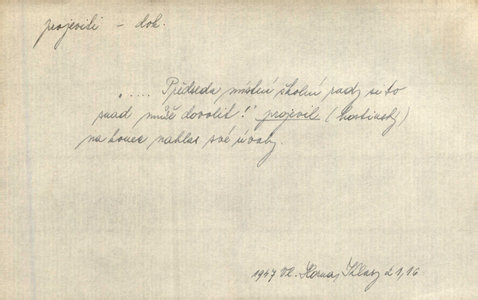 projeviti – dok.
".... Předseda místní školní rady si to
snad může dovolit!" projevil (hostinský)
na konec nahlas své úvahy.
1947 Vl.